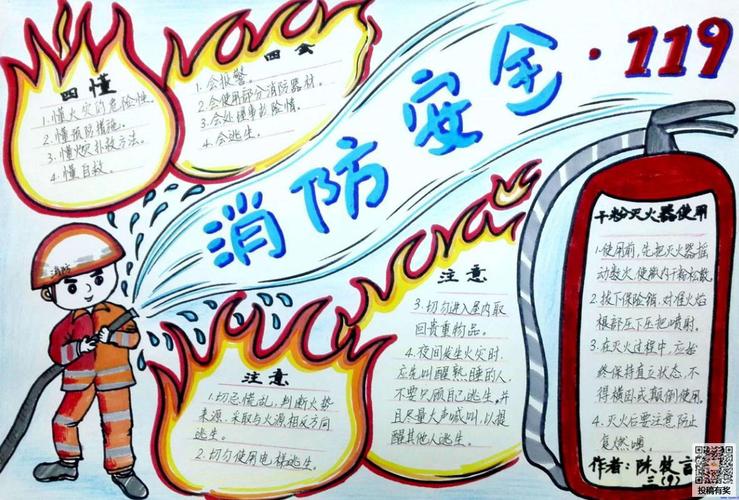 消防安全·119
四懂
1.懂火灾的危险性。
2.懂预防措施。
3.懂火灾扑救方法。
4.懂自救。
四会
1.会报警。
2.会使用部分消防器材。
3.会处理事故险情。
4.会逃生。
消防
注意
1.切忌慌乱,判断火势
来源,采取与火源相反方向
逃生。
2.切勿使用电梯逃生。
注意
3.切勿进入屋内取
回贵重物品。
4.夜间发生火灾时,
应先叫醒熟睡的人,
不要只顾自己逃生。并
且尽量大声喊叫,以提
醒其他人逃生。
干粉灭火器使用
1.使用前,先把灭火器摇
动数次,使瓶内干粉松散。
2.拔下保险销,对准火焰
根部压下压把喷射。
3.在灭火过程中,应始
终保持直立状态,不
得横卧或颠倒使用。
4.灭火后要注意防止
复燃噢。
作者:陈牧言
三(9)
投稿有奖